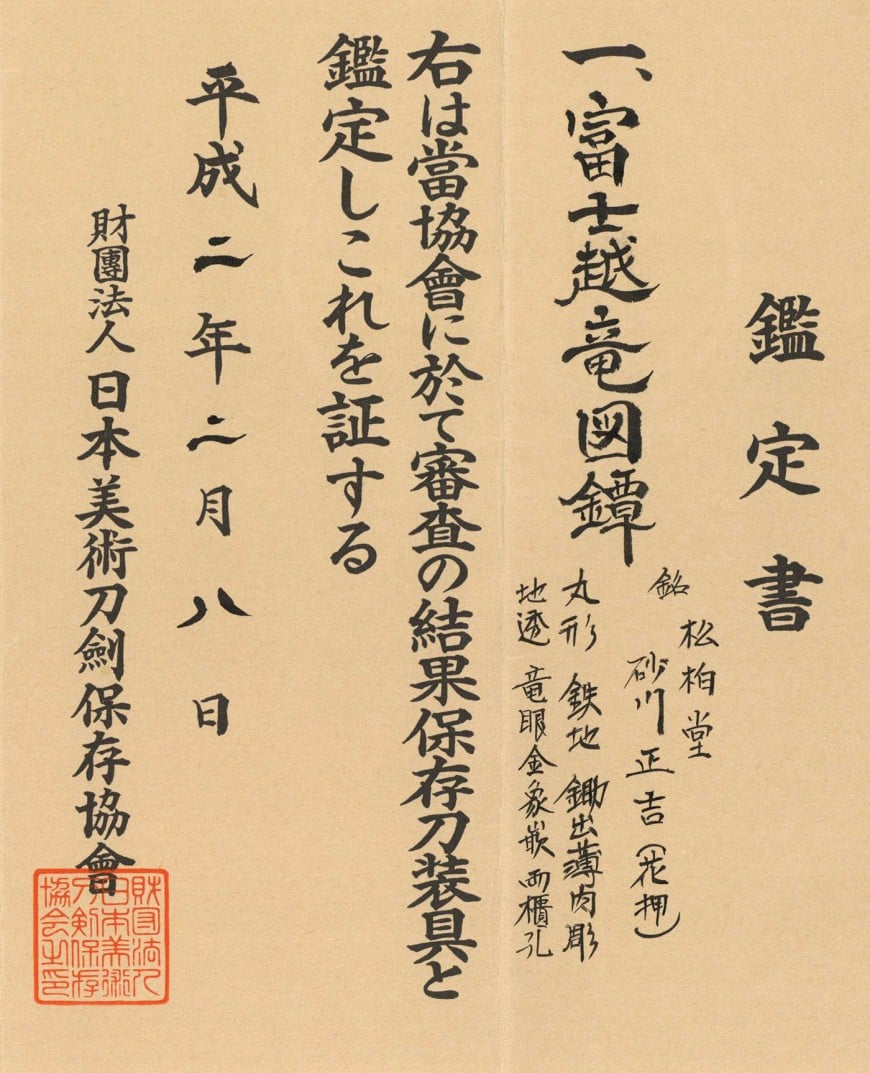 鑑定書
一、富士越竜図鐔
銘 松柏堂
砂川正吉(花押)
丸形 鉄地 鋤出薄肉彫
地透 竜眼金象嵌 両櫃孔
右は當協會に於て審査の結果保存刀装具と
鑑定しこれを証する
平成二年二月八日
財團法人日本美術刀劍保存協會
財団法人
日本美術
刀剣保存
協会之印